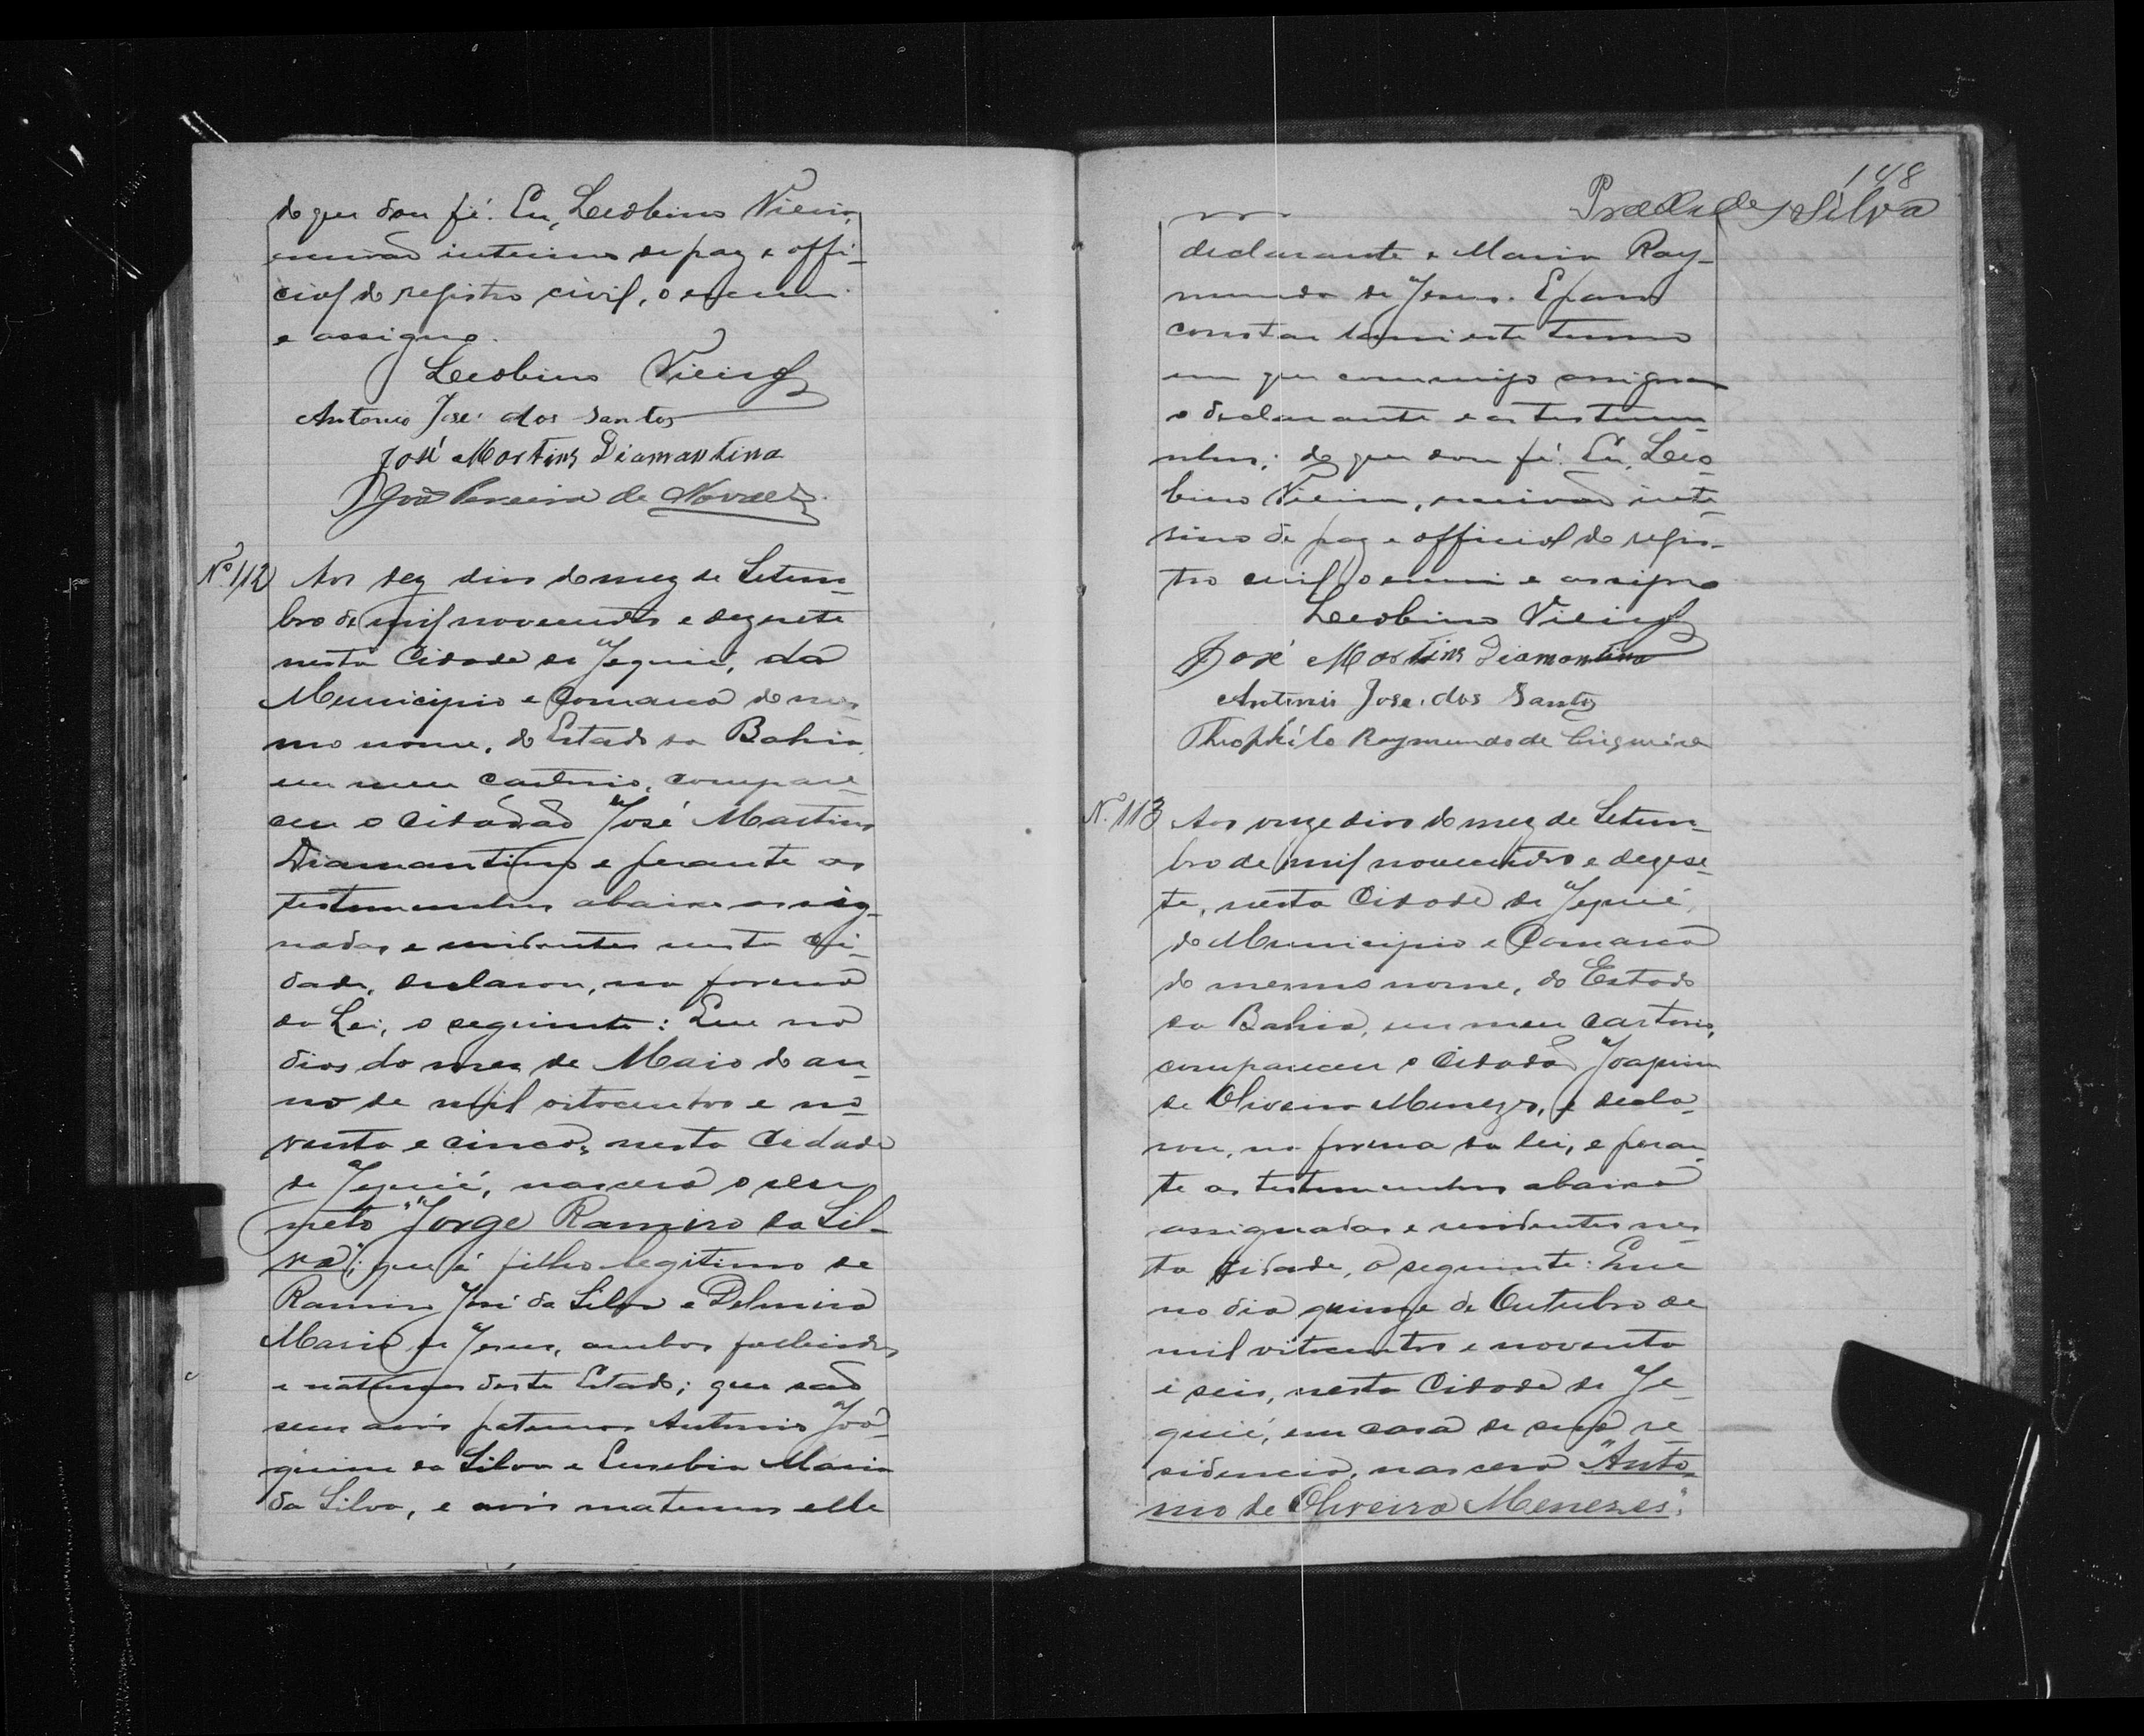 do que dou fé. Eu, Leobino Vieira,
escrivão interino de paz e offi-
cial do registro civil, o escrevi
e assigno.
Leobino Vieira
Antonio José dos Santos
José Martins Diamantino
João Pereira de Novaes
Nº 112 Aos dez dias do mez de Setem-
bro de mil novecentos e dezesete
nesta Cidade de Jequié, do
Municipio e Comarca do mes-
mo nome, do Estado da Bahia,
em meu cartorio, compare-
ceu o cidadão José Martins
Diamantino e perante as
testemunhas abaixo assig-
nadas e residentes nesta ci-
dade, declarou, na forma
da Lei, o seguinte: Que no
dias do mez de Maio do an-
no de mil oitocentos e no-
venta e cinco, nesta Cidade
de Jequié, nasceu o seu
neto "Jorge Ramiro da Sil-
va"; que é filho legitimo de
Ramiro José da Silva e Delmira
Maria de Jesus, ambos fallecidos
e naturaes deste Estado; que são
seus avós paternos Antonio Joa-
quim da Silva e Eusebia Maria
da Silva, e avós maternos elle
148
Silva
declarante e Maria Ray-
munda de Jesus. E para
constar lavrei este termo
em que commigo assignam
o declarante e as testemu-
nhas; do que dou fé. Eu, Leo-
bino Vieira, escrivão inte-
rino de paz e official do regis-
tro civil, o escrevi e assigno
Leobino Vieira
José Martins Diamantino
Antonio José dos Santos
Theophilo Raymundo de Cirqueira
N. 113 Aos onze dias do mez de Setem-
bro de mil novecentos e dezese-
te, nesta Cidade de Jequié,
do Municipio e Comarca
do mesmo nome, do Estado
da Bahia, em meu cartorio,
compareceu o cidadão Joaquim
de Oliveira Menezes, e decla-
rou, na forma da lei, e peran-
te as testemunhas abaixo
assignadas e residentes nes-
ta cidade, o seguinte: Que
no dia quinze de Outubro de
mil oitocentos e noventa
e seis, nesta Cidade de Je-
quié, em casa de sua re-
sidencia, nasceu "Anto-
nio de Oliveira Menezes",